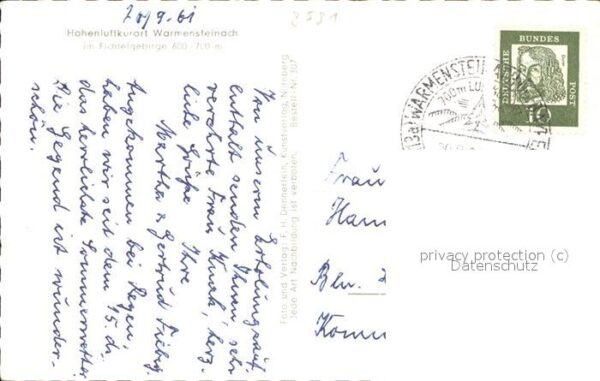 20/9.61
2531
Höhenluftkurort Warmensteinach
im Fichtelgebirge 600-700 m
Von unserm Erholungsauf-
enthalt senden Ihnen, sehr
verehrte Frau Kunk, herz-
liche Grüße Ihre
Martha & Gertrud Fiebig
Angekommen bei Regen,
haben wir seit dem 15. ds.
das herrlichste Sommerwetter
Die Gegend ist wunder-
schön.
Foto und Verlag: F. H. Dennerlein, Kunstverlag, Nürnberg
Jede Art Nachbildung ist verboten. Bestell-Nr. 307
WARMENSTEINACH
700m
DEUTSCHE
BUNDES
POST
10
Frau
Bln.
privacy protection (c)
Datenschutz